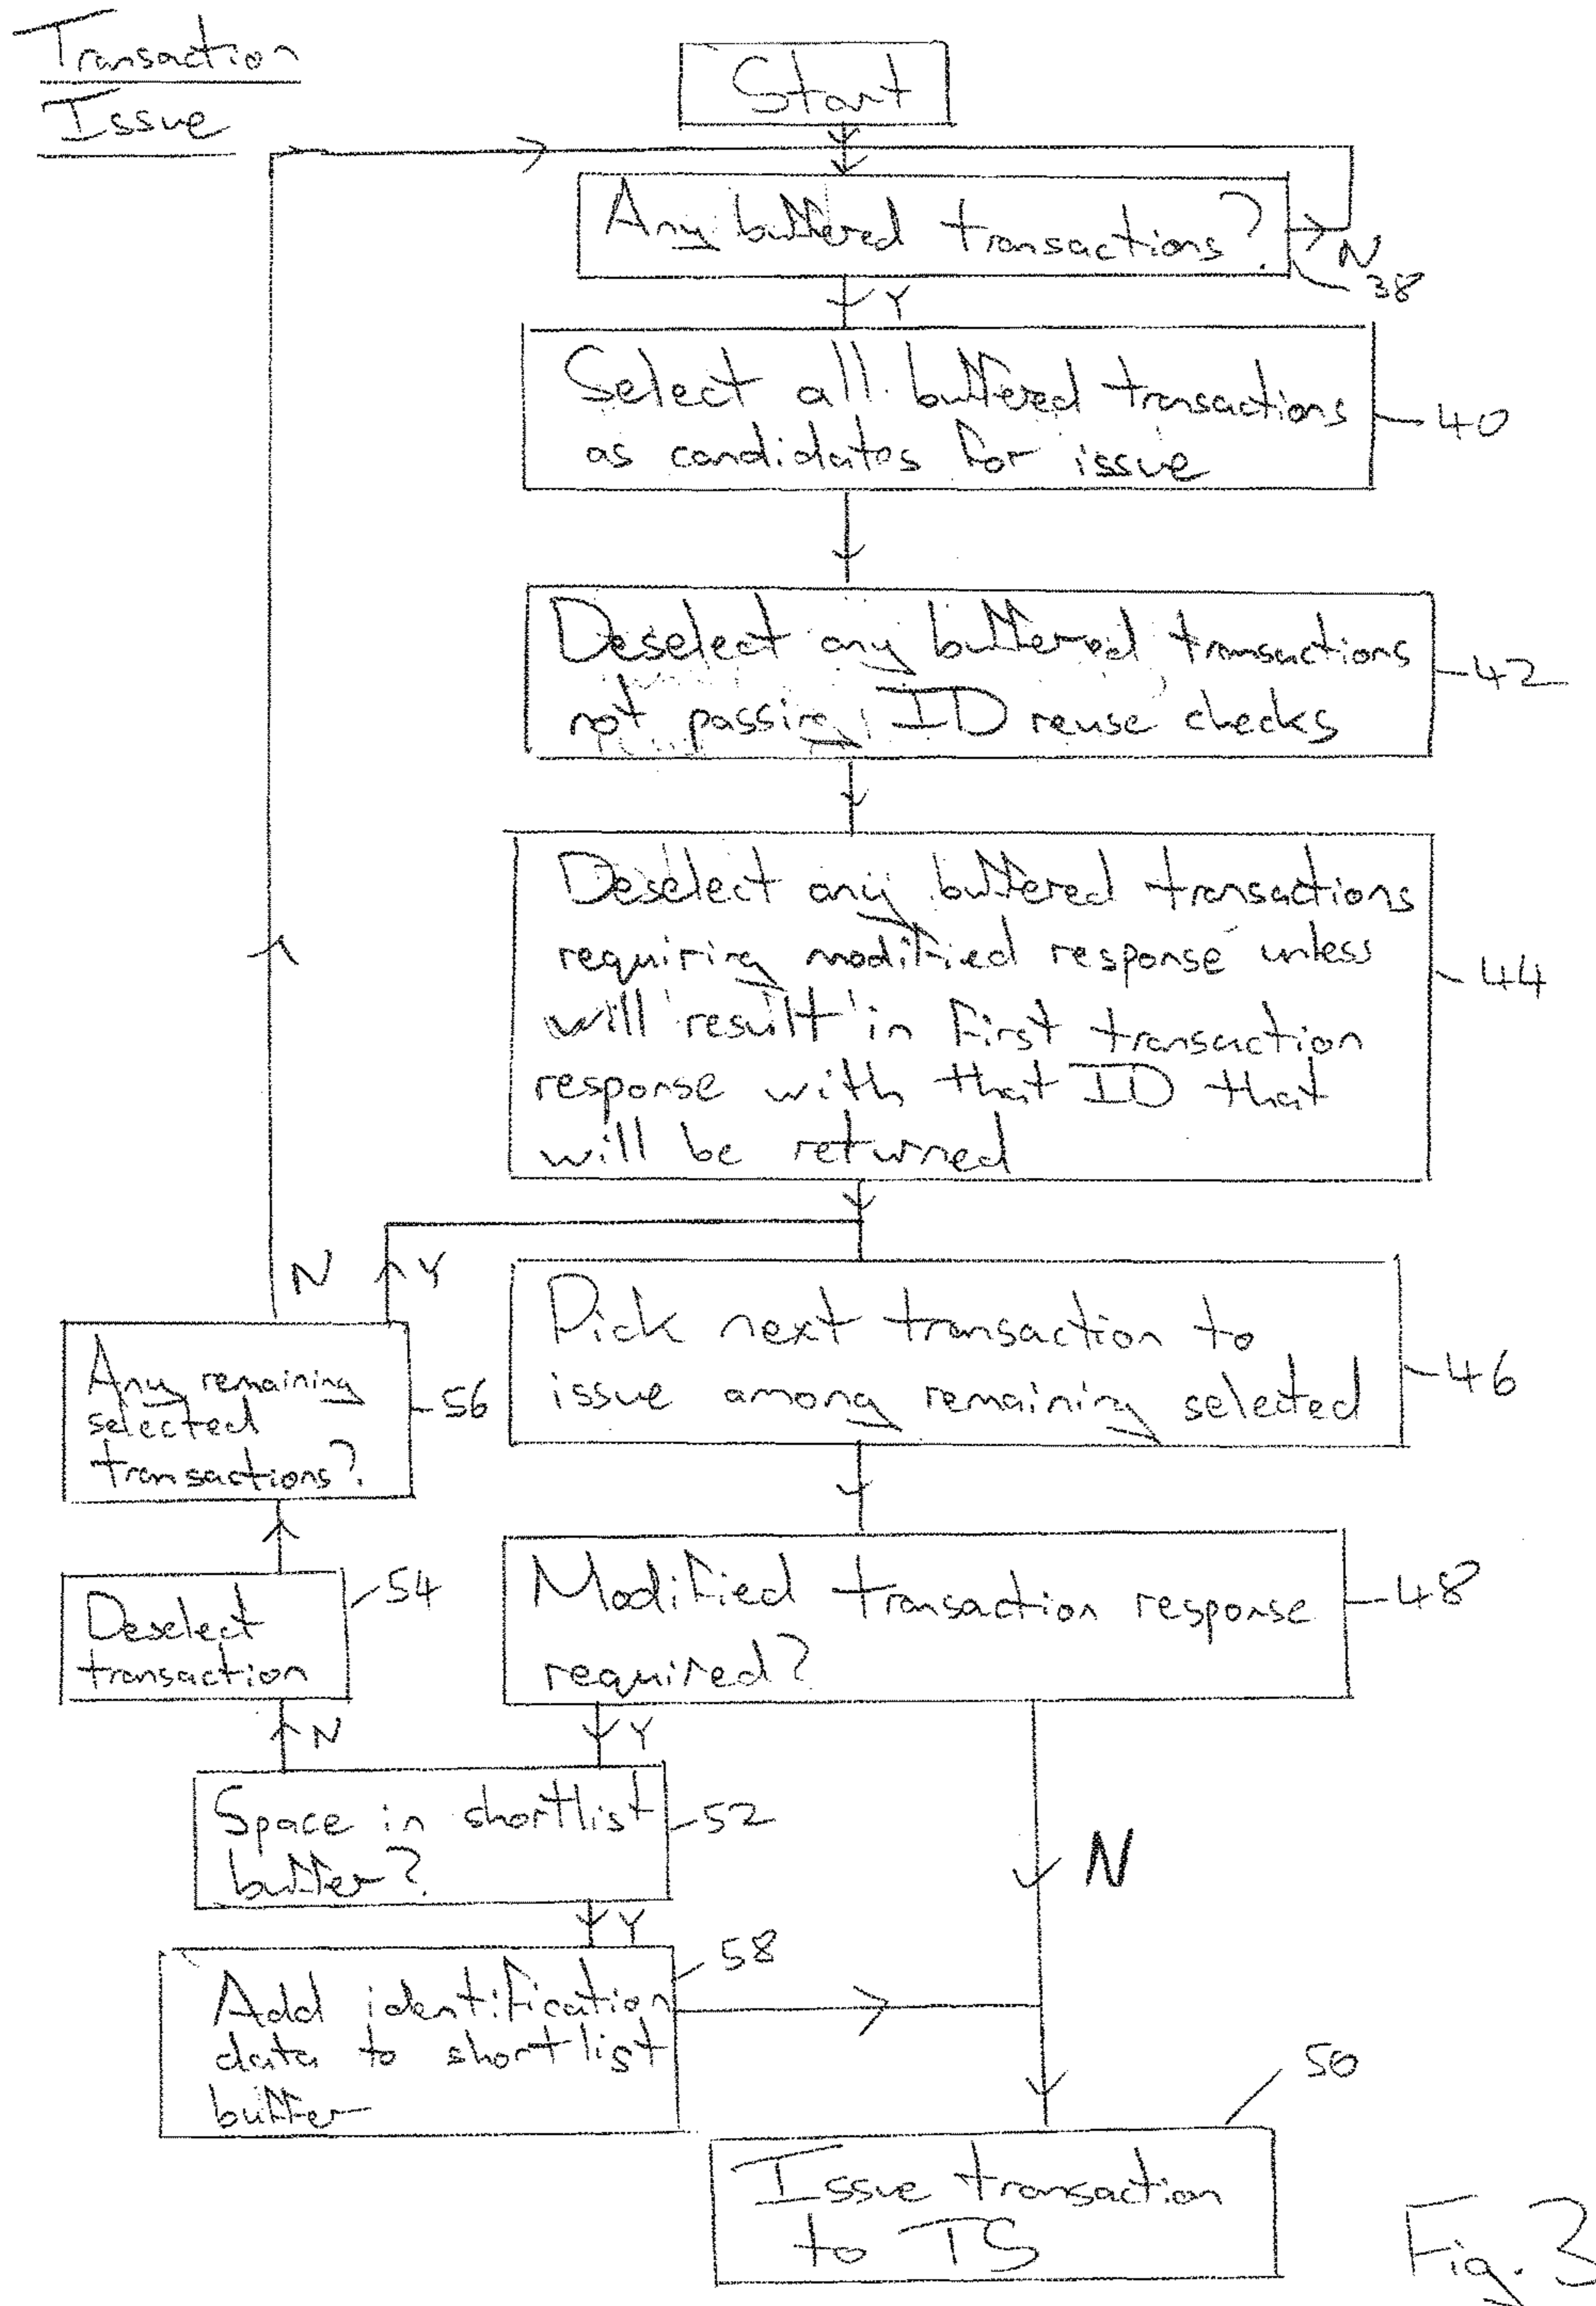 Transaction
Issue
Start
Any buffered transactions?
N
38
Y
Select all buffered transactions
as candidates for issue
40
Deselect any buffered transactions
not passing ID reuse checks
42
Deselect any buffered transactions
requiring modified response unless
will result in first transaction
response with that ID that
will be returned
44
N
Y
Pick next transaction to
issue among remaining selected
46
Any remaining
selected
transactions?
56
Modified transaction response
required?
48
Deselect
transaction
54
N
Y
Space in shortlist
buffer?
52
N
Y
Add identification
data to shortlist
buffer
58
Issue transaction
to TS
50
Fig. 3